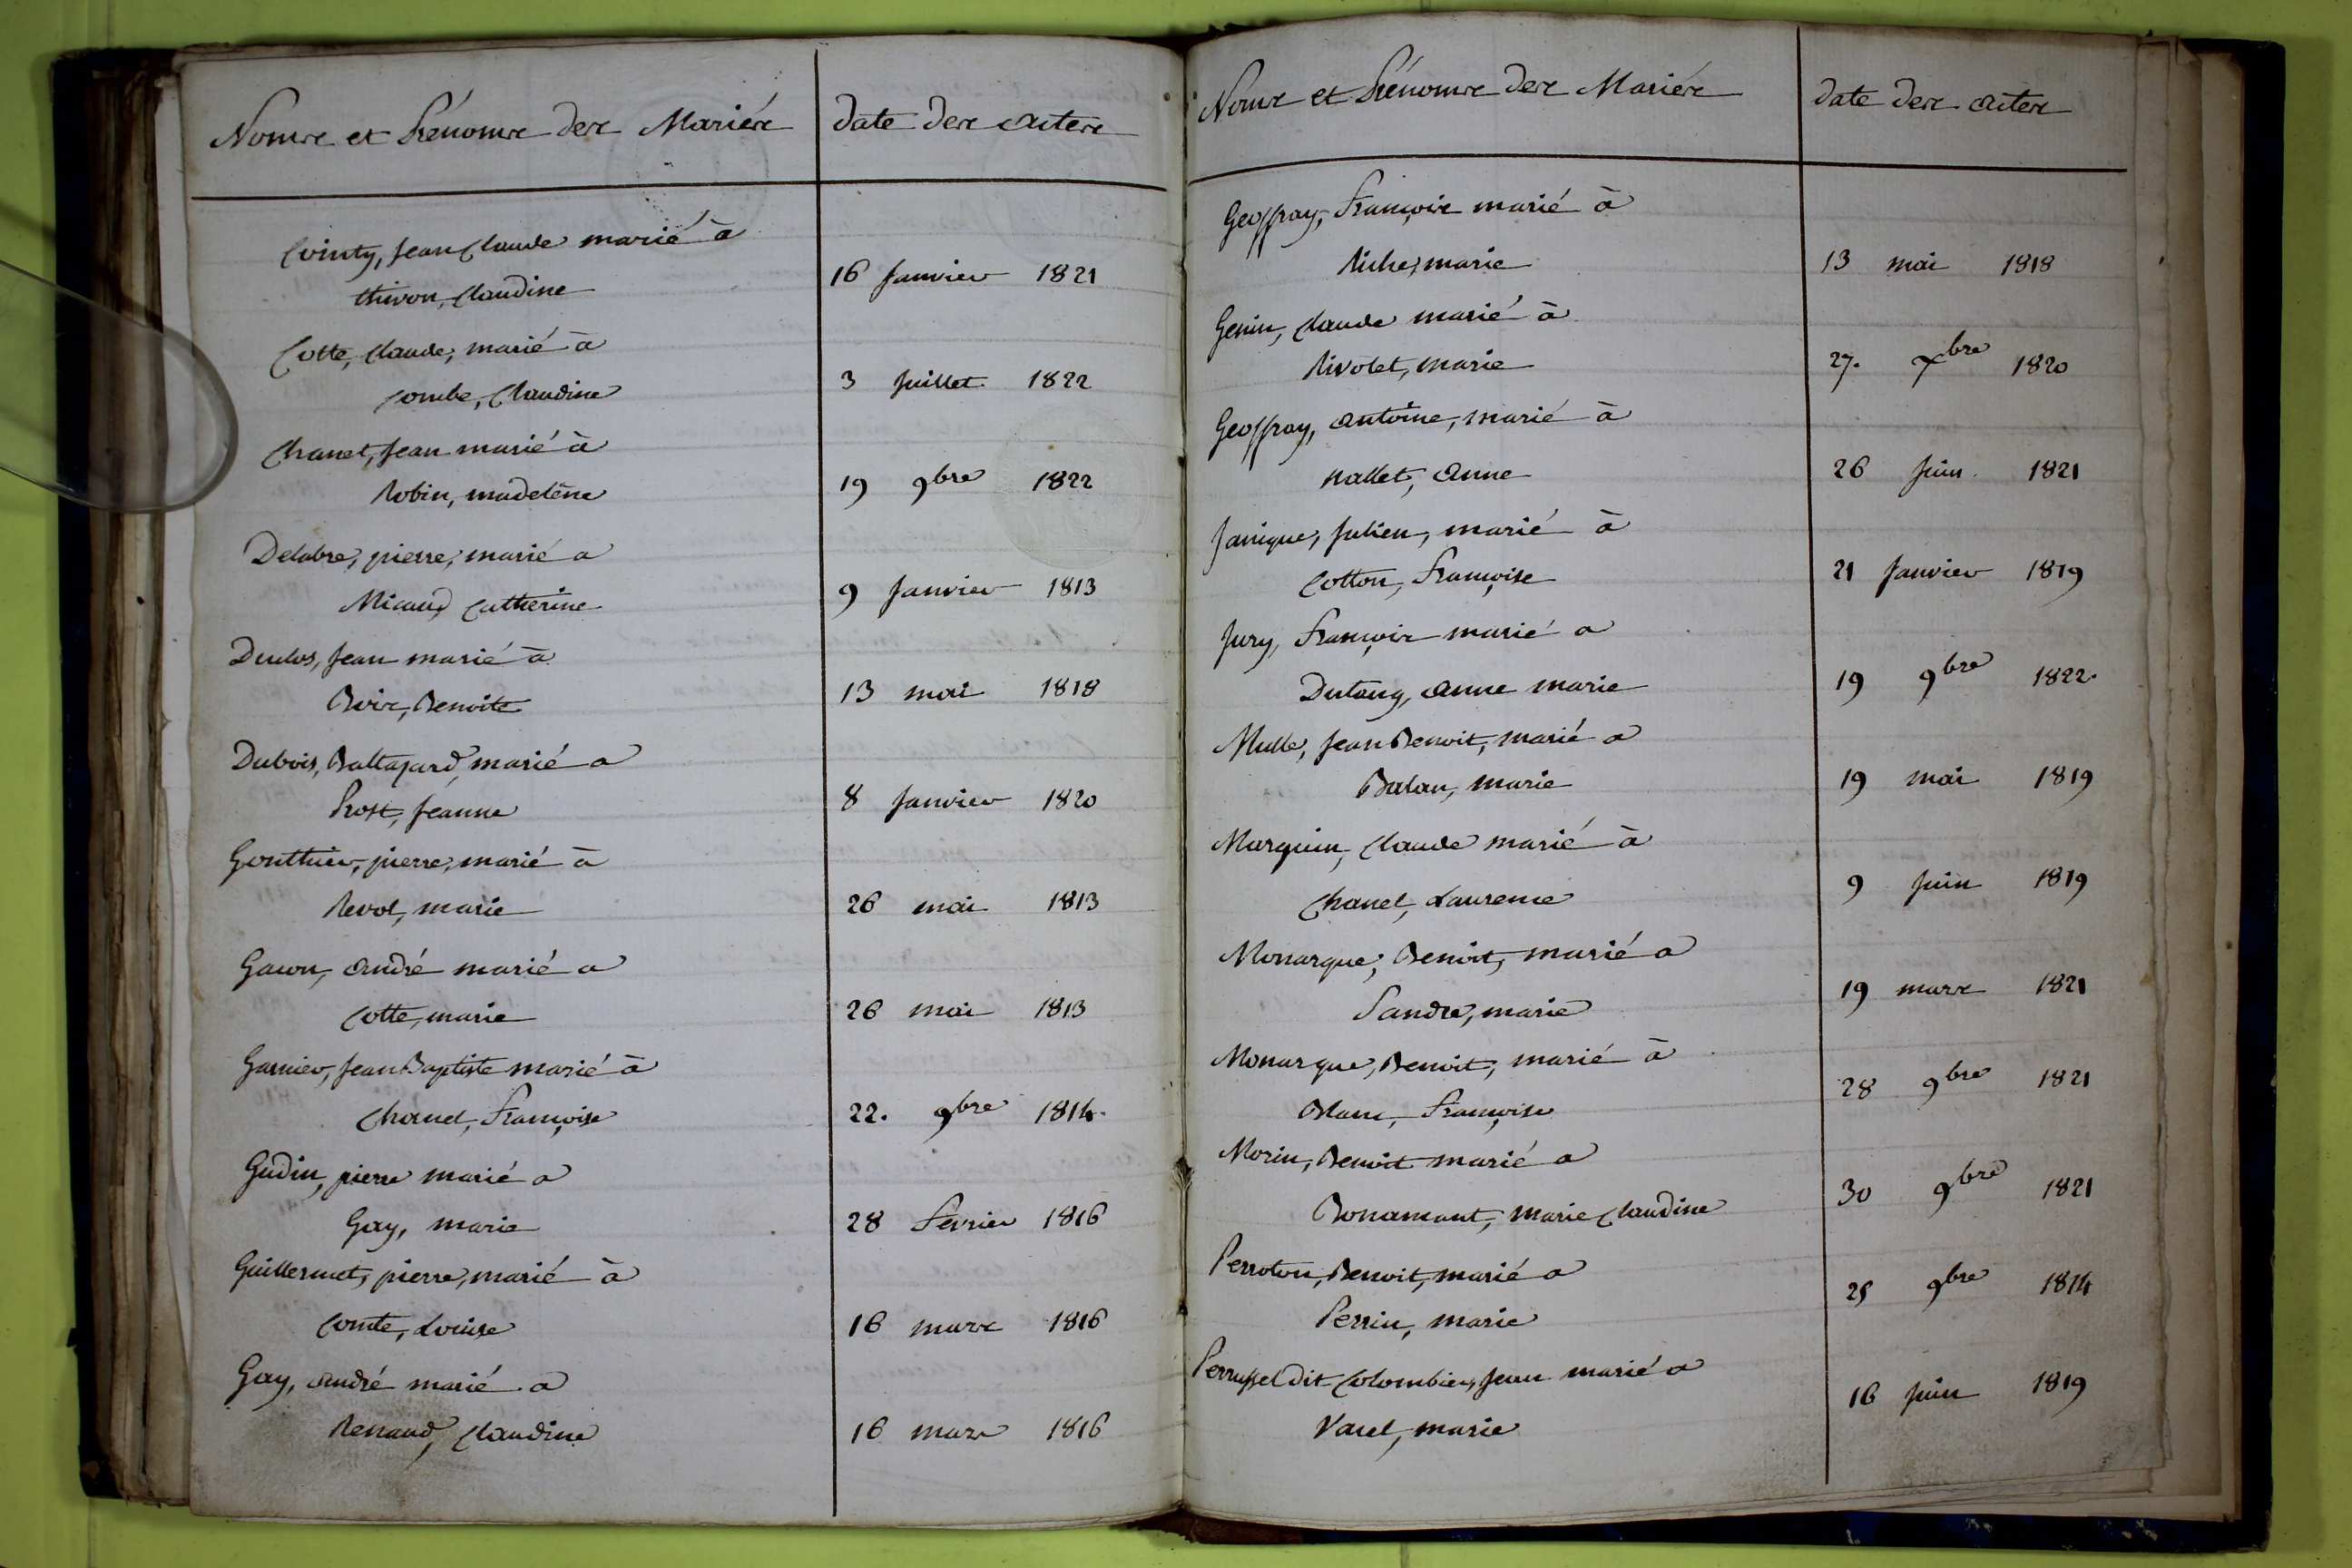 Noms et Prénoms des Mariés date des actes
Cointy, Jean Claude marié à
thivon, Claudine 16 Janvier 1821
Cotte, Claude, marié à
Combe, Claudine 3 Juillet 1822
Chanet, Jean marié à
Robin, madelêne 19 9bre 1822
Delabre, pierre, marié a
Micaud Catherine 9 Janvier 1813
Duclos, Jean marié à
Boix, Benoite 13 mai 1818
Dubois, Baltazard marié a
Prost, Jeanne 8 Janvier 1820
Gonthier, pierre, marié à
Revol, marie 26 mai 1813
Gacon, andré marié a
Cotte, marie 26 mai 1813
Garnier, Jean Baptiste marié à
Chanel, Françoise 22. 9bre 1814.
Gudin, pierre marié a
Gay, marie 28 Fevrier 1816
Guillermet, pierre, marié à
Comte, Louise 16 mars 1816
Gay, andré marié a
Renaud, Claudine 16 mars 1816
Noms et Prénoms des Mariés date des actes
Geoffray, François marié à
Riche, marie 13 mai 1818
Genin, Claude marié à
Rivolet, marie 27. Xbre 1820
Geoffray, antoine, marié à
nallet, anne 26 Juin 1821
Janique, Julien, marié à
Cotton, Françoise 21 Janvier 1819
Jury, François marié a
Dutang, anne marie 19 9bre 1822.
Mulle, Jean Benoit, marié a
Balan, marie 19 mai 1819
Marguin, Claude marié à
Chanel, Laurence 9 Juin 1819
Monarque, Benoit, marié a
Sandre, marie 19 mars 1821
Monarque, Benoit, marié à
Blanc, Françoise 28 9bre 1821
Morin, Benoit marié a
Bonamant, marie Claudine 30 9bre 1821
Perroton, Benoit, marié a
Perrin, marie 25 9bre 1814
Perrussel dit Colombier, Jean marié a
Varel, marie 16 Juin 1819